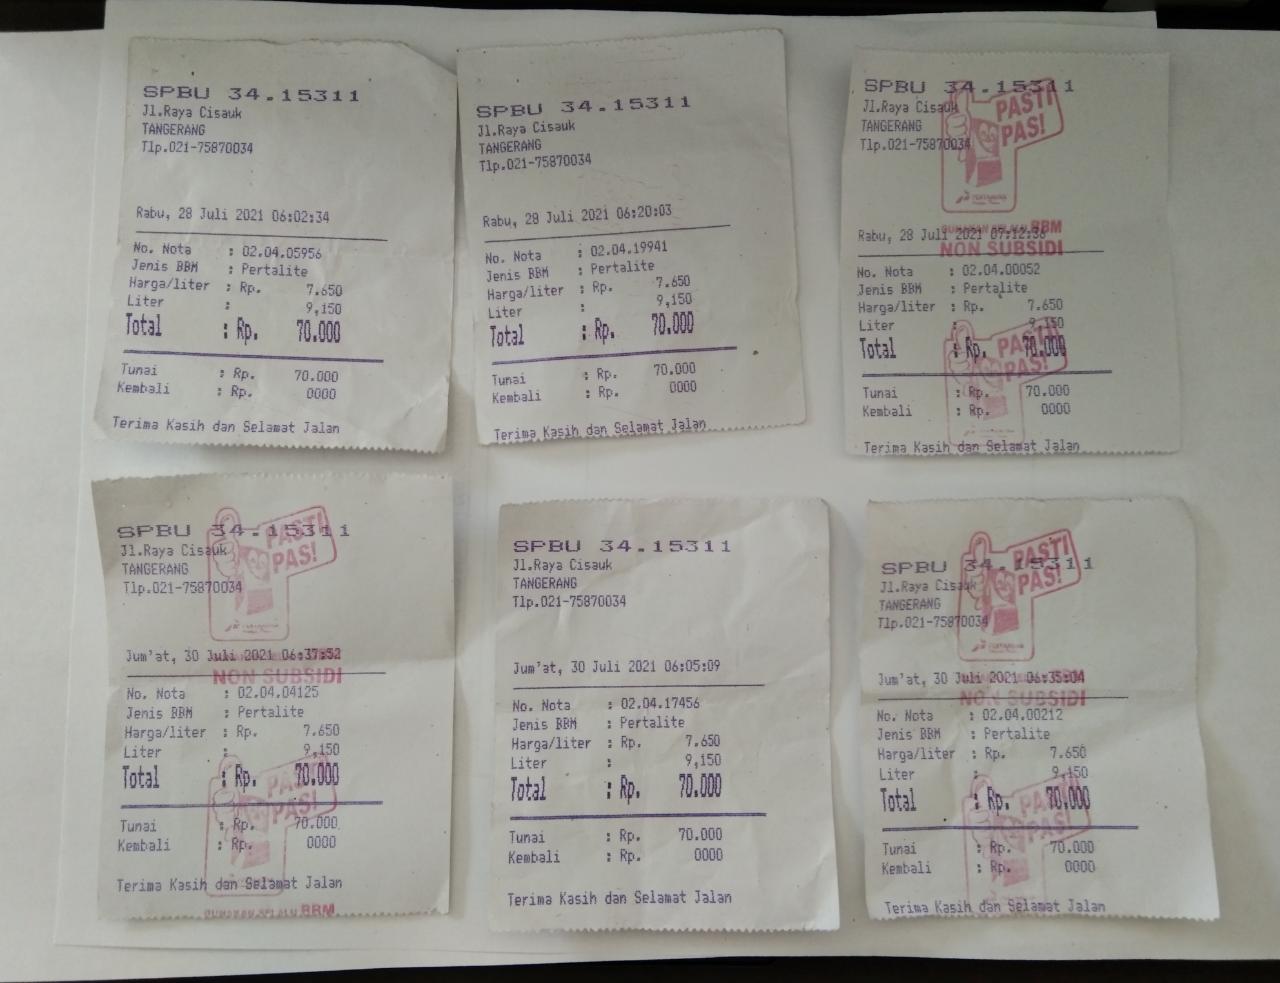 SPBU 34.15311
Jl.Raya Cisauk
TANGERANG
Tlp.021-75870034
Rabu, 28 Juli 2021 06:02:34
No. Nota : 02.04.05956
Jenis BBM : Pertalite
Harga/liter : Rp. 7.650
Liter : 9,150
Total : Rp. 70.000
Tunai : Rp. 70.000
Kembali : Rp. 0000
Terima Kasih dan Selamat Jalan
SPBU 34.15311
Jl.Raya Cisauk
TANGERANG
Tlp.021-75870034
Rabu, 28 Juli 2021 06:20:03
No. Nota : 02.04.19941
Jenis BBM : Pertalite
Harga/liter : Rp. 7.650
Liter : 9,150
Total : Rp. 70.000
Tunai : Rp. 70.000
Kembali : Rp. 0000
Terima Kasih dan Selamat Jalan
SPBU 34.15311
Jl.Raya Cisauk
TANGERANG
Tlp.021-75870034
PASTI
PAS!
PERTAMINA
Rabu, 28 Juli 2021
GUNAKAN SELALU BBM
NON SUBSIDI
No. Nota : 02.04.00052
Jenis BBM : Pertalite
Harga/liter : Rp. 7.650
Liter : 9,150
Total : Rp. 70.000
PASTI
PAS!
Tunai : Rp. 70.000
Kembali : Rp. 0000
Terima Kasih dan Selamat Jalan
SPBU 34.15311
Jl.Raya Cisauk
TANGERANG
Tlp.021-75870034
PASTI
PAS!
PERTAMINA
Jum'at, 30 Juli 2021 06:37:52
NON SUBSIDI
No. Nota : 02.04.04125
Jenis BBM : Pertalite
Harga/liter : Rp. 7.650
Liter : 9,150
Total : Rp. 70.000
PASTI
PAS!
Tunai : Rp. 70.000
Kembali : Rp. 0000
Terima Kasih dan Selamat Jalan
GUNAKAN SELALU BBM
SPBU 34.15311
Jl.Raya Cisauk
TANGERANG
Tlp.021-75870034
Jum'at, 30 Juli 2021 06:05:09
No. Nota : 02.04.17456
Jenis BBM : Pertalite
Harga/liter : Rp. 7.650
Liter : 9,150
Total : Rp. 70.000
Tunai : Rp. 70.000
Kembali : Rp. 0000
Terima Kasih dan Selamat Jalan
SPBU 34.15311
Jl.Raya Cisauk
TANGERANG
Tlp.021-75870034
PASTI
PAS!
PERTAMINA
Jum'at, 30 Juli 2021 06:35:04
BBM
NON SUBSIDI
No. Nota : 02.04.00212
Jenis BBM : Pertalite
Harga/liter : Rp. 7.650
Liter : 9,150
Total : Rp. 70.000
PASTI
PAS!
Tunai : Rp. 70.000
Kembali : Rp. 0000
Terima Kasih dan Selamat Jalan